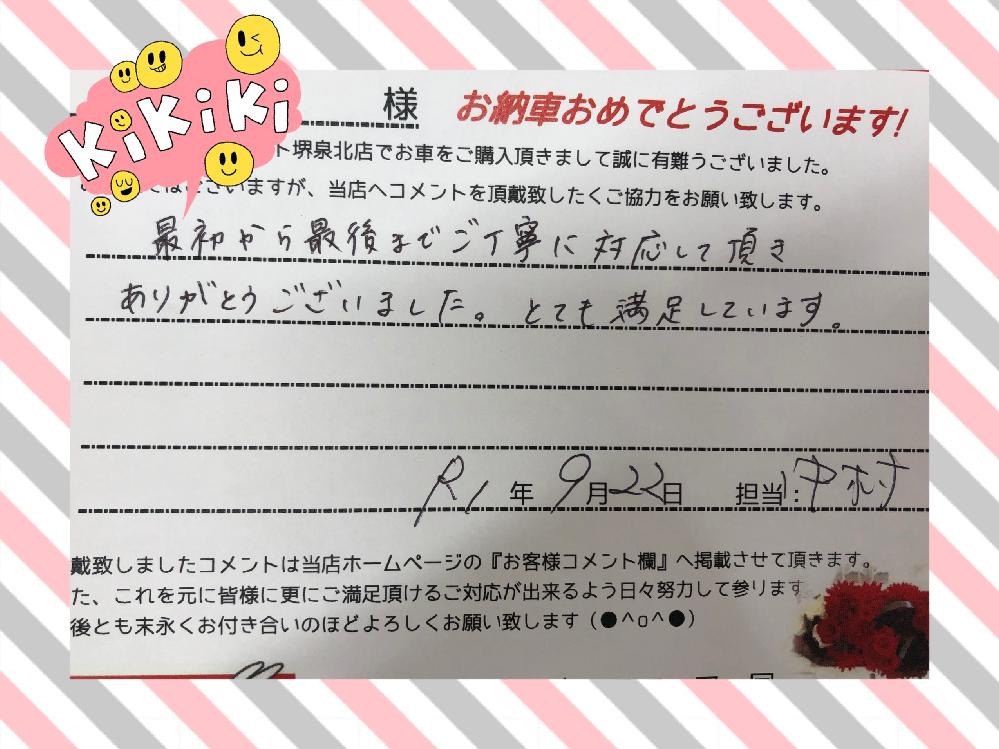 KiKiKi
様
お納車おめでとうございます!
ト堺泉北店でお車をご購入頂きまして誠に有難うございました。
ございますが、当店へコメントを頂戴致したくご協力をお願い致します。
最初から最後までご丁寧に対応して頂き
ありがとうございました。とても満足しています。
R1年9月22日 担当:中村
戴致しましたコメントは当店ホームページの『お客様コメント欄』へ掲載させて頂きます。
た、これを元に皆様に更にご満足頂けるご対応が出来るよう日々努力して参ります
後とも末永くお付き合いのほどよろしくお願い致します(●^o^●)